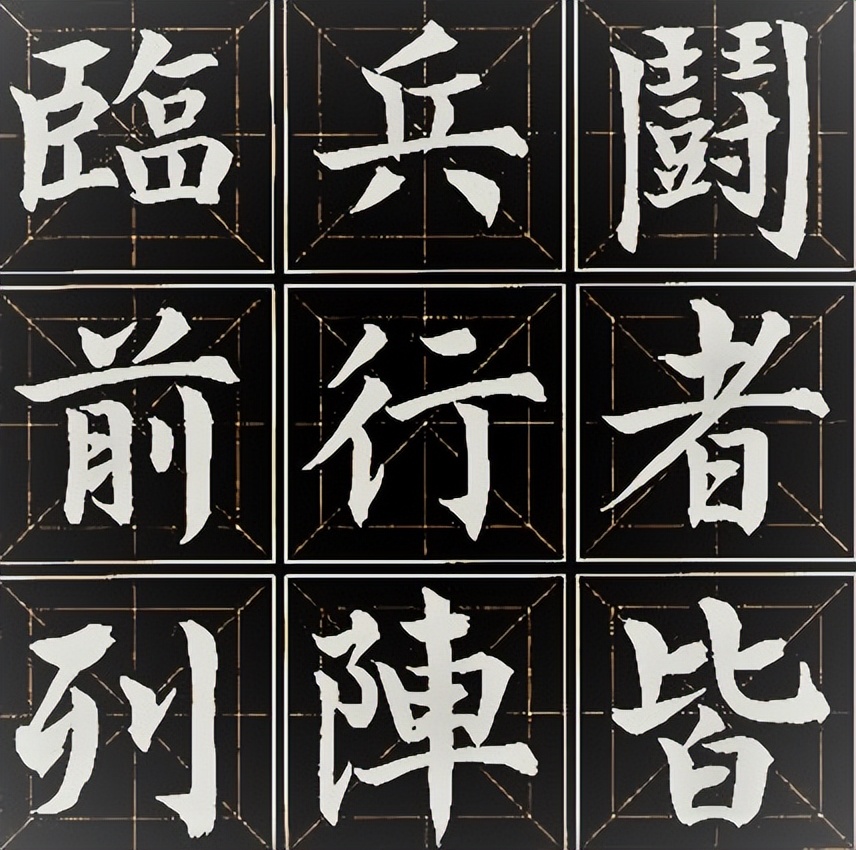 臨兵鬪
前行者
列陣皆